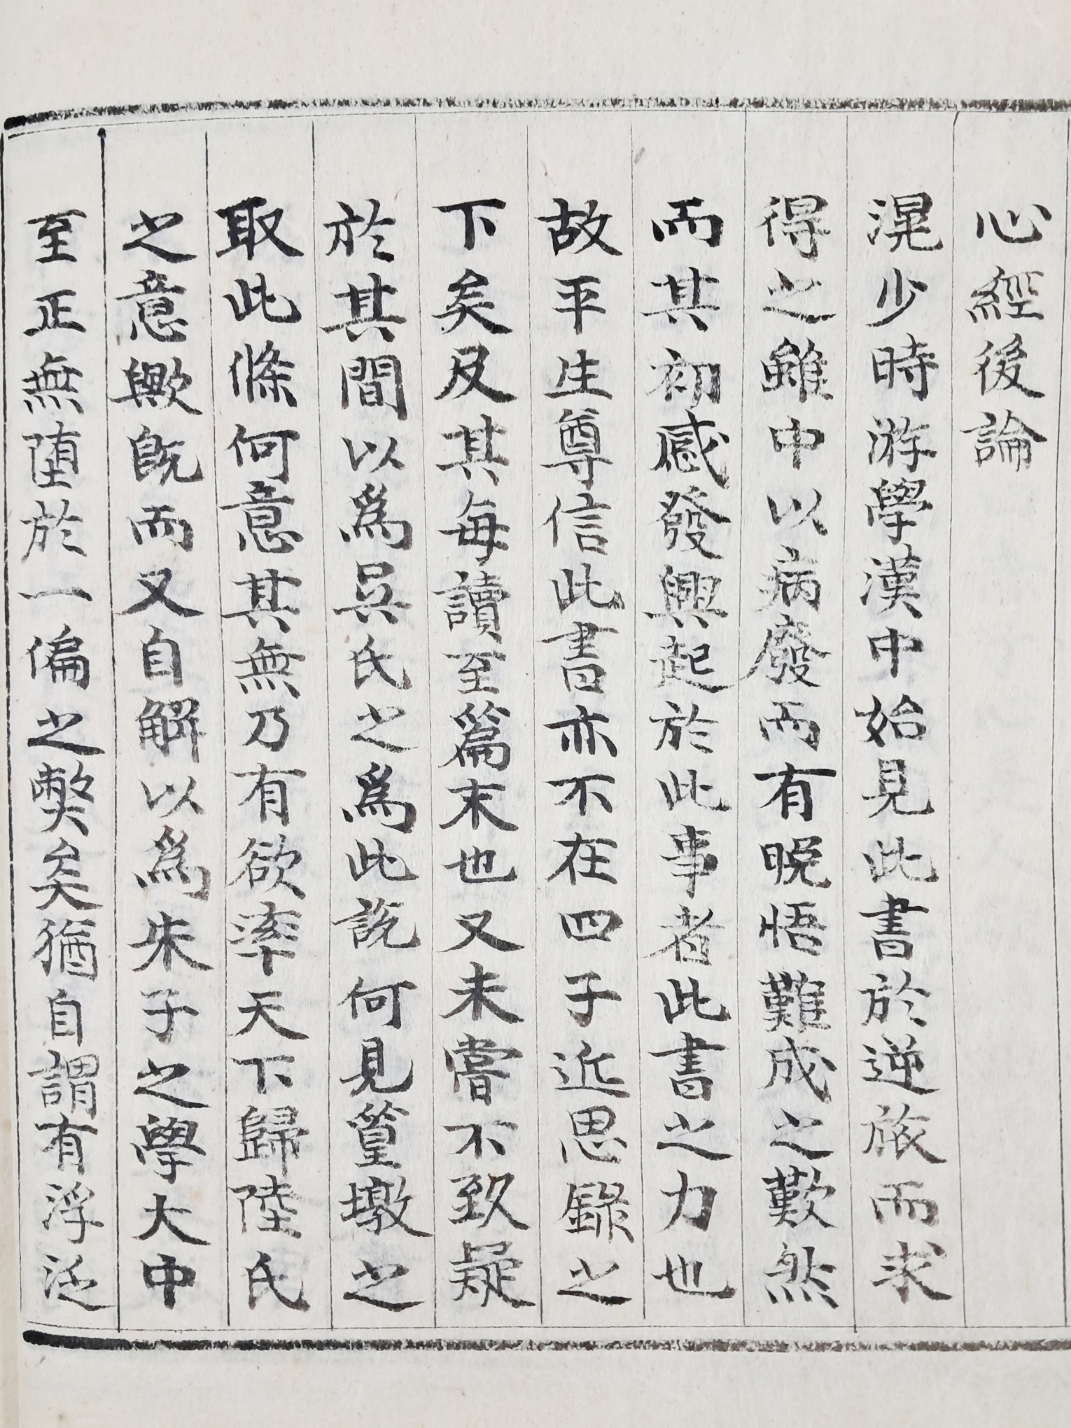 心經後論
滉少時游學漢中始見此書於逆旅而求
得之雖中以病廢而有晩悟難成之歎然
而其初感發興起於此事者此書之力也
故平生尊信此書亦不在四子近思錄之
下矣及其每讀至篇末也又未嘗不致疑
於其間以爲吳氏之爲此說何見篁墩之
取此條何意其無乃有欲率天下歸陸氏
之意歟旣而又自解以爲朱子之學大中
至正無墮於一偏之弊矣猶自謂有浮泛